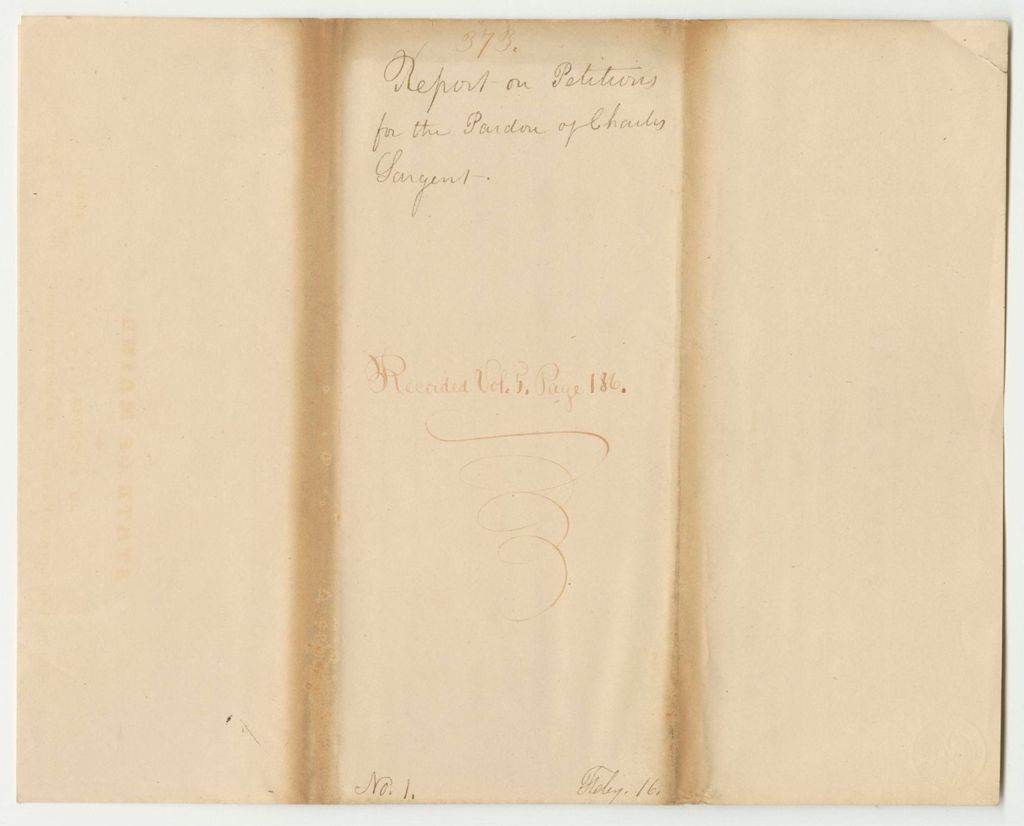 373.
Report on Petitions
for the Pardon of Charles
Sargent.
Recorded Vol. 5. Page 186.
No. 1. Feby. 16.
STATE OF MAINE